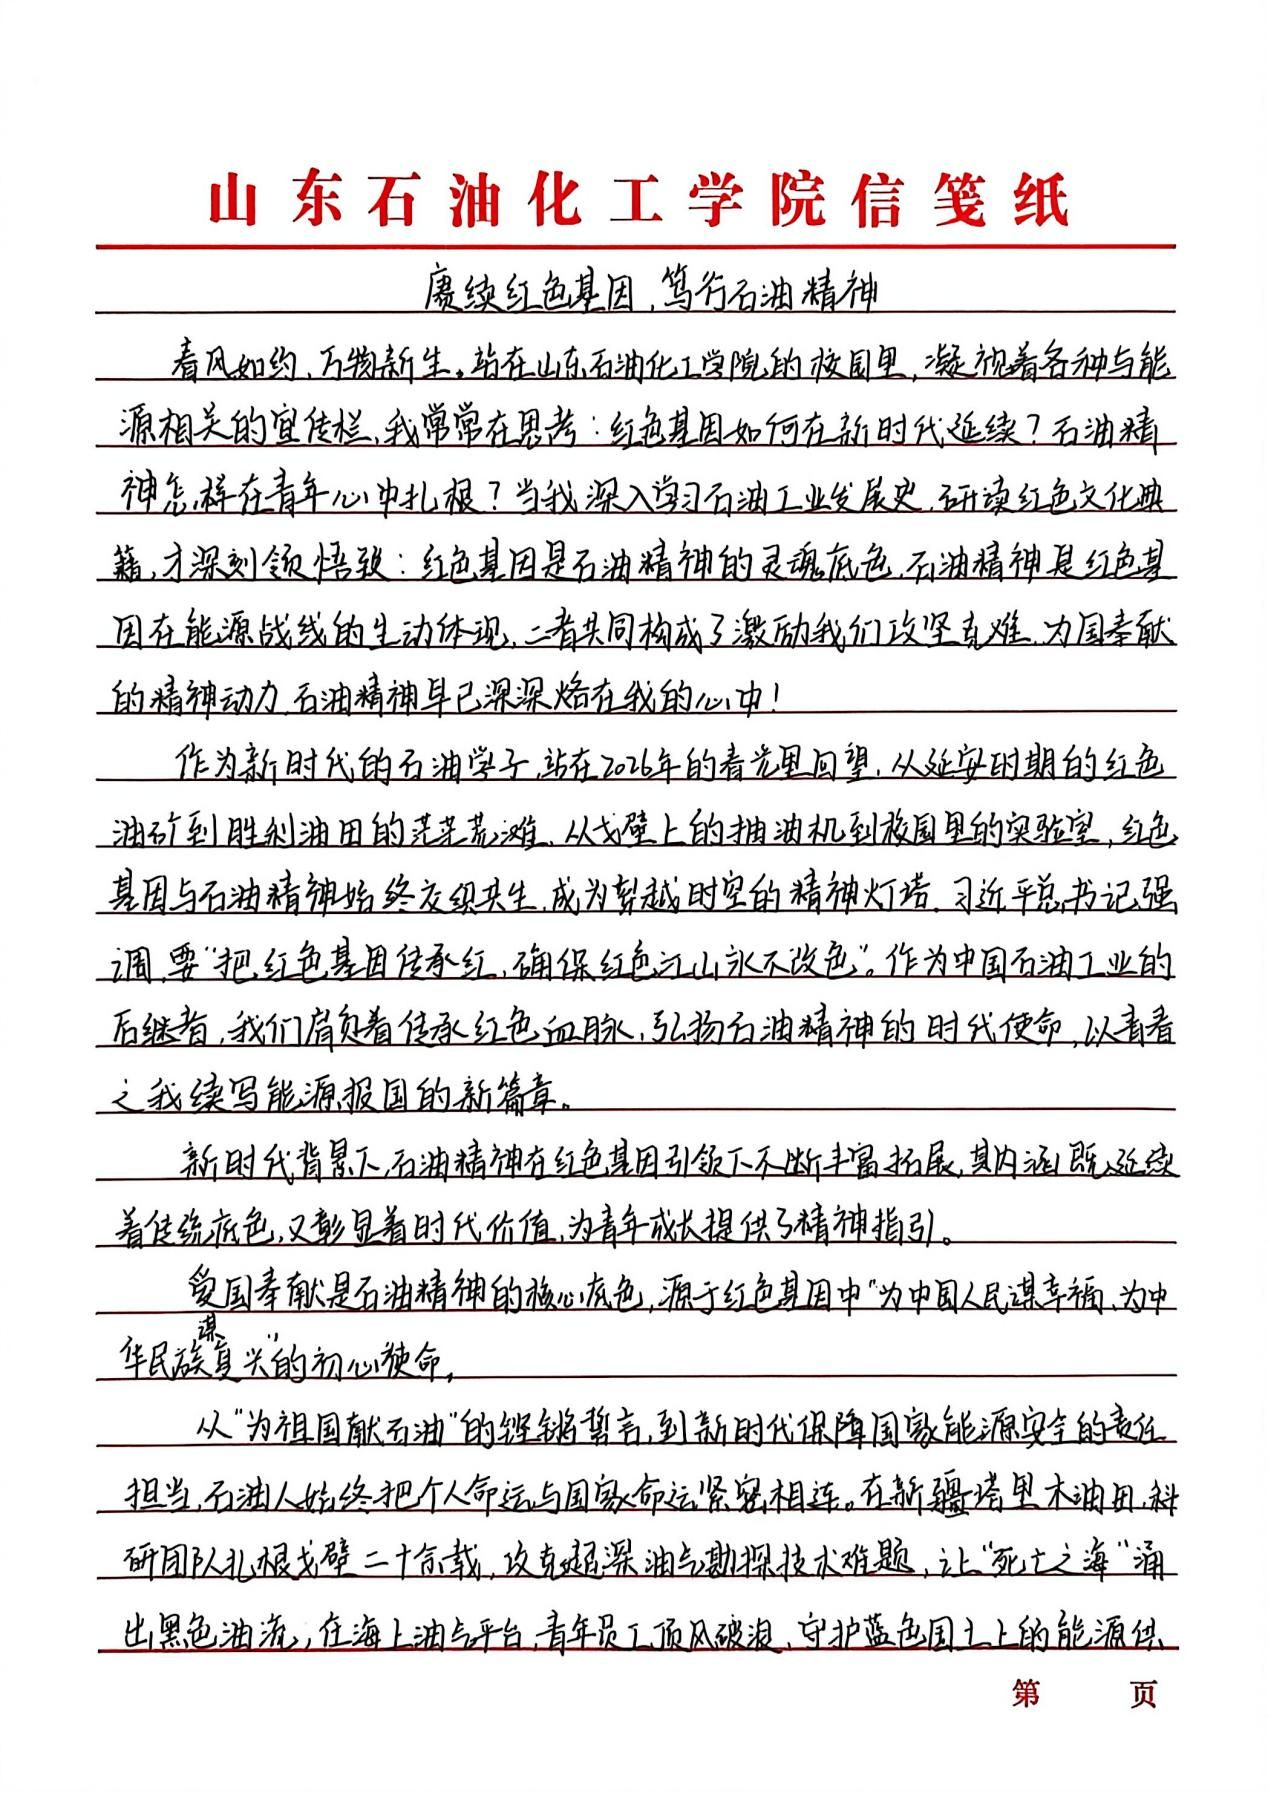 山东石油化工学院信笺纸
赓续红色基因，笃行石油精神
春风如约，万物新生。站在山东石油化工学院的校园里，凝视着各种与能
源相关的宣传栏，我常常在思考：红色基因如何在新时代延续？石油精
神怎样在青年心中扎根？当我深入学习石油工业发展史，研读红色文化典
籍，才深刻领悟致：红色基因是石油精神的灵魂底色，石油精神是红色基
因在能源战线的生动体现，二者共同构成了激励我们攻坚克难，为国奉献
的精神动力，石油精神早已深深烙在我的心中！
作为新时代的石油学子，站在2026年的春光里回望，从延安时期的红色
油矿到胜利油田的茫茫荒滩，从戈壁上的抽油机到校园里的实验室，红色
基因与石油精神始终交织共生，成为穿越时空的精神灯塔．习近平总书记强
调，要“把红色基因传承红，确保红色江山永不改色”。作为中国石油工业的
后继者，我们肩负着传承红色血脉，弘扬石油精神的时代使命，以青春
之我续写能源报国的新篇章。
新时代背景下，石油精神在红色基因引领下不断丰富拓展，其内涵既延续
着传统底色，又彰显着时代价值，为青年成长提供了精神指引。
爱国奉献是石油精神的核心底色，源于红色基因中“为中国人民谋幸福，为中
华民族谋复兴”的初心使命，
从“为祖国献石油”的铿锵誓言，到新时代保障国家能源安全的责任
担当，石油人始终把个人命运与国家命运紧密相连。在新疆塔里木油田，科
研团队扎根戈壁二十余载，攻克超深油气勘探技术难题，让“死亡之海”涌
出黑色油流；在海上油气平台，青年员工顶风破浪，守护蓝色国土上的能源供
第 页